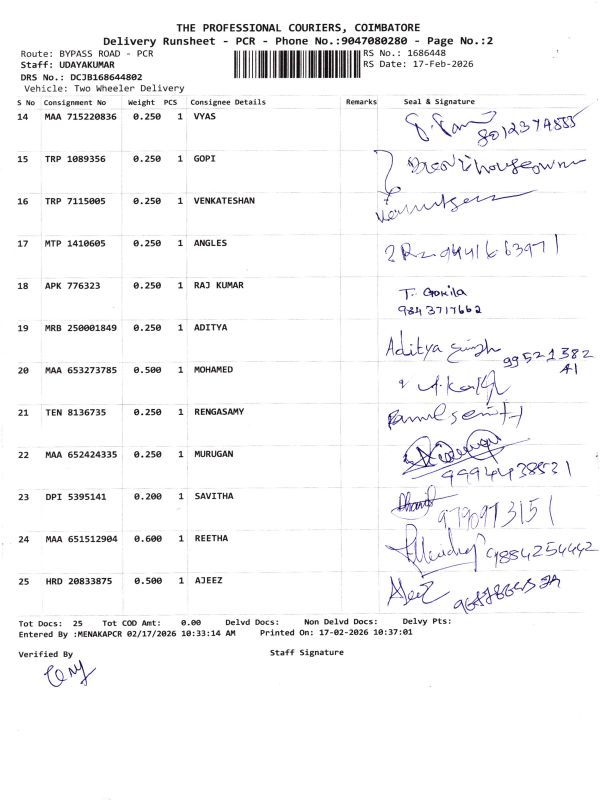 THE PROFESSIONAL COURIERS, COIMBATORE
Delivery Runsheet - PCR - Phone No.:9047080280 - Page No.:2
Route: BYPASS ROAD - PCR RS No.: 1686448
Staff: UDAYAKUMAR RS Date: 17-Feb-2026
DRS No.: DCJB168644802
Vehicle: Two Wheeler Delivery
S No Consignment No Weight PCS Consignee Details Remarks Seal & Signature
14 MAA 715220836 0.250 1 VYAS
15 TRP 1089356 0.250 1 GOPI
16 TRP 7115005 0.250 1 VENKATESHAN
17 MTP 1410605 0.250 1 ANGLES
18 APK 776323 0.250 1 RAJ KUMAR T. Gokila
9843717662
19 MRB 250001849 0.250 1 ADITYA Aditya Singh 99521382
41
20 MAA 653273785 0.500 1 MOHAMED
21 TEN 8136735 0.250 1 RENGASAMY
22 MAA 652424335 0.250 1 MURUGAN
9994438531
23 DPI 5395141 0.200 1 SAVITHA 9790973151
24 MAA 651512904 0.600 1 REETHA 9884254442
25 HRD 20833875 0.500 1 AJEEZ Ajeez
Tot Docs: 25 Tot COD Amt: 0.00 Delvd Docs: Non Delvd Docs: Delvy Pts:
Entered By :MENAKAPCR 02/17/2026 10:33:14 AM Printed On: 17-02-2026 10:37:01
Verified By Staff Signature